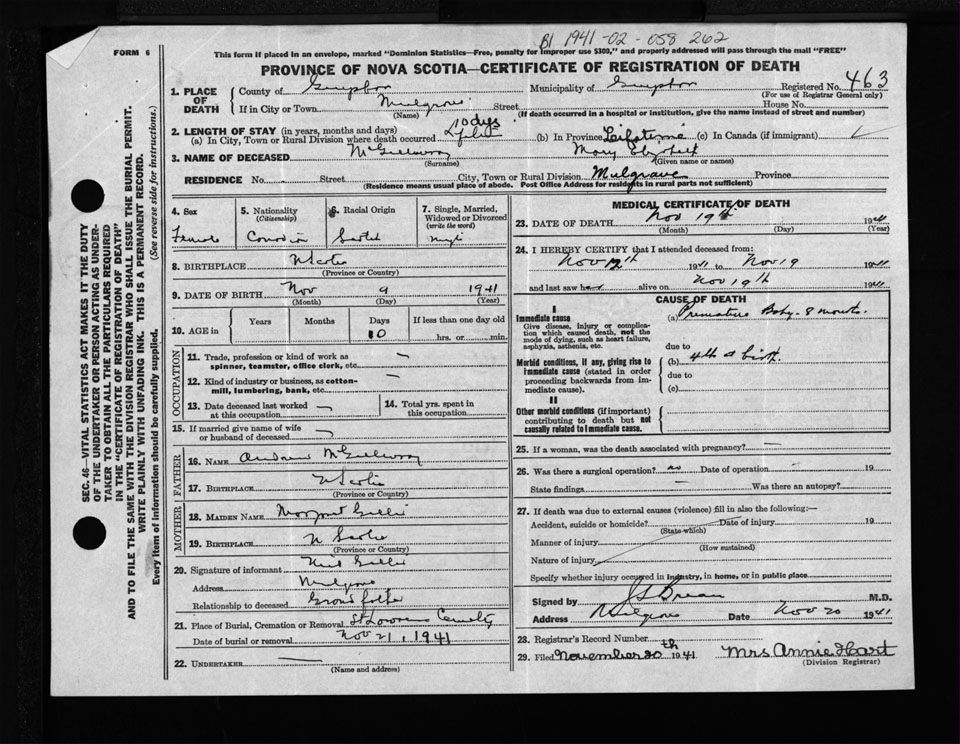 B1 1941-02-058262
FORM 6
This form if placed in an envelope, marked "Dominion Statistics—Free, penalty for improper use $300," and properly addressed will pass through the mail "FREE"
PROVINCE OF NOVA SCOTIA—CERTIFICATE OF REGISTRATION OF DEATH
1. PLACE OF DEATH County of Municipality of Registered No. 463
(For use of Registrar General only)
If in City or Town Mulgrave Street House No.
(Name) (If death occurred in a hospital or institution, give the name instead of street and number)
2. LENGTH OF STAY (in years, months and days)
(a) In City, Town or Rural Division where death occurred 10 dys (b) In Province Lifetime (c) In Canada (if immigrant)
3. NAME OF DECEASED McGillivray Mary
(Surname) (Given name or names)
RESIDENCE No. Street City, Town or Rural Division Mulgrave Province
(Residence means usual place of abode. Post Office Address for residents in rural parts not sufficient)
4. Sex 5. Nationality (Citizenship) 6. Racial Origin 7. Single, Married, Widowed or Divorced (write the word)
Female Canadian Scotch single
8. BIRTHPLACE N Scotia
(Province or Country)
9. DATE OF BIRTH Nov 9 1941
(Month) (Day) (Year)
10. AGE in Years Months Days If less than one day old
10 hrs. or min.
OCCUPATION
11. Trade, profession or kind of work as spinner, teamster, office clerk, etc. —
12. Kind of industry or business, as cotton-mill, lumbering, bank, etc. —
13. Date deceased last worked at this occupation — 14. Total yrs. spent in this occupation
15. If married give name of wife or husband of deceased —
FATHER
16. NAME McGillivray
17. BIRTHPLACE N Scotia
(Province or Country)
MOTHER
18. MAIDEN NAME Margaret Gillis
19. BIRTHPLACE N Scotia
(Province or Country)
20. Signature of informant Gillis
Address Mulgrave
Relationship to deceased Grand father
21. Place of Burial, Cremation or Removal St Lawrence Cemetery
Date of burial or removal Nov 21, 1941
22. UNDERTAKER
(Name and address)
MEDICAL CERTIFICATE OF DEATH
23. DATE OF DEATH Nov 19th 1941
(Month) (Day) (Year)
24. I HEREBY CERTIFY that I attended deceased from:
Nov 12th 1941 to Nov 19 1941
and last saw her alive on Nov 19th 1941
CAUSE OF DEATH
I
Immediate cause
Give disease, injury or complication which caused death, not the mode of dying, such as heart failure, asphyxia, asthenia, etc.
(a) Premature Baby - 8 months.
due to
Morbid conditions, if any, giving rise to immediate cause (stated in order proceeding backwards from immediate cause).
(b) at birth.
due to
(c)
II
Other morbid conditions (if important) contributing to death but not causally related to immediate cause.
25. If a woman, was the death associated with pregnancy? —
26. Was there a surgical operation? no Date of operation — 19
State findings Was there an autopsy?
27. If death was due to external causes (violence) fill in also the following:—
Accident, suicide or homicide? Date of injury 19
(State which)
Manner of injury
(How sustained)
Nature of injury
Specify whether injury occurred in industry, in home, or in public place
Signed by M.D.
Address Mulgrave Date Nov 20 1941
28. Registrar's Record Number
29. Filed November 20th 1941 Mrs Annie Hart
(Division Registrar)
SEC. 46—VITAL STATISTICS ACT MAKES IT THE DUTY
OF THE UNDERTAKER OR PERSON ACTING AS UNDER-
TAKER TO OBTAIN ALL THE PARTICULARS REQUIRED
IN THE "CERTIFICATE OF REGISTRATION OF DEATH"
AND TO FILE THE SAME WITH THE DIVISION REGISTRAR WHO SHALL ISSUE THE BURIAL PERMIT.
WRITE PLAINLY WITH UNFADING INK. THIS IS A PERMANENT RECORD.
Every item of information should be carefully supplied. (See reverse side for instructions.)